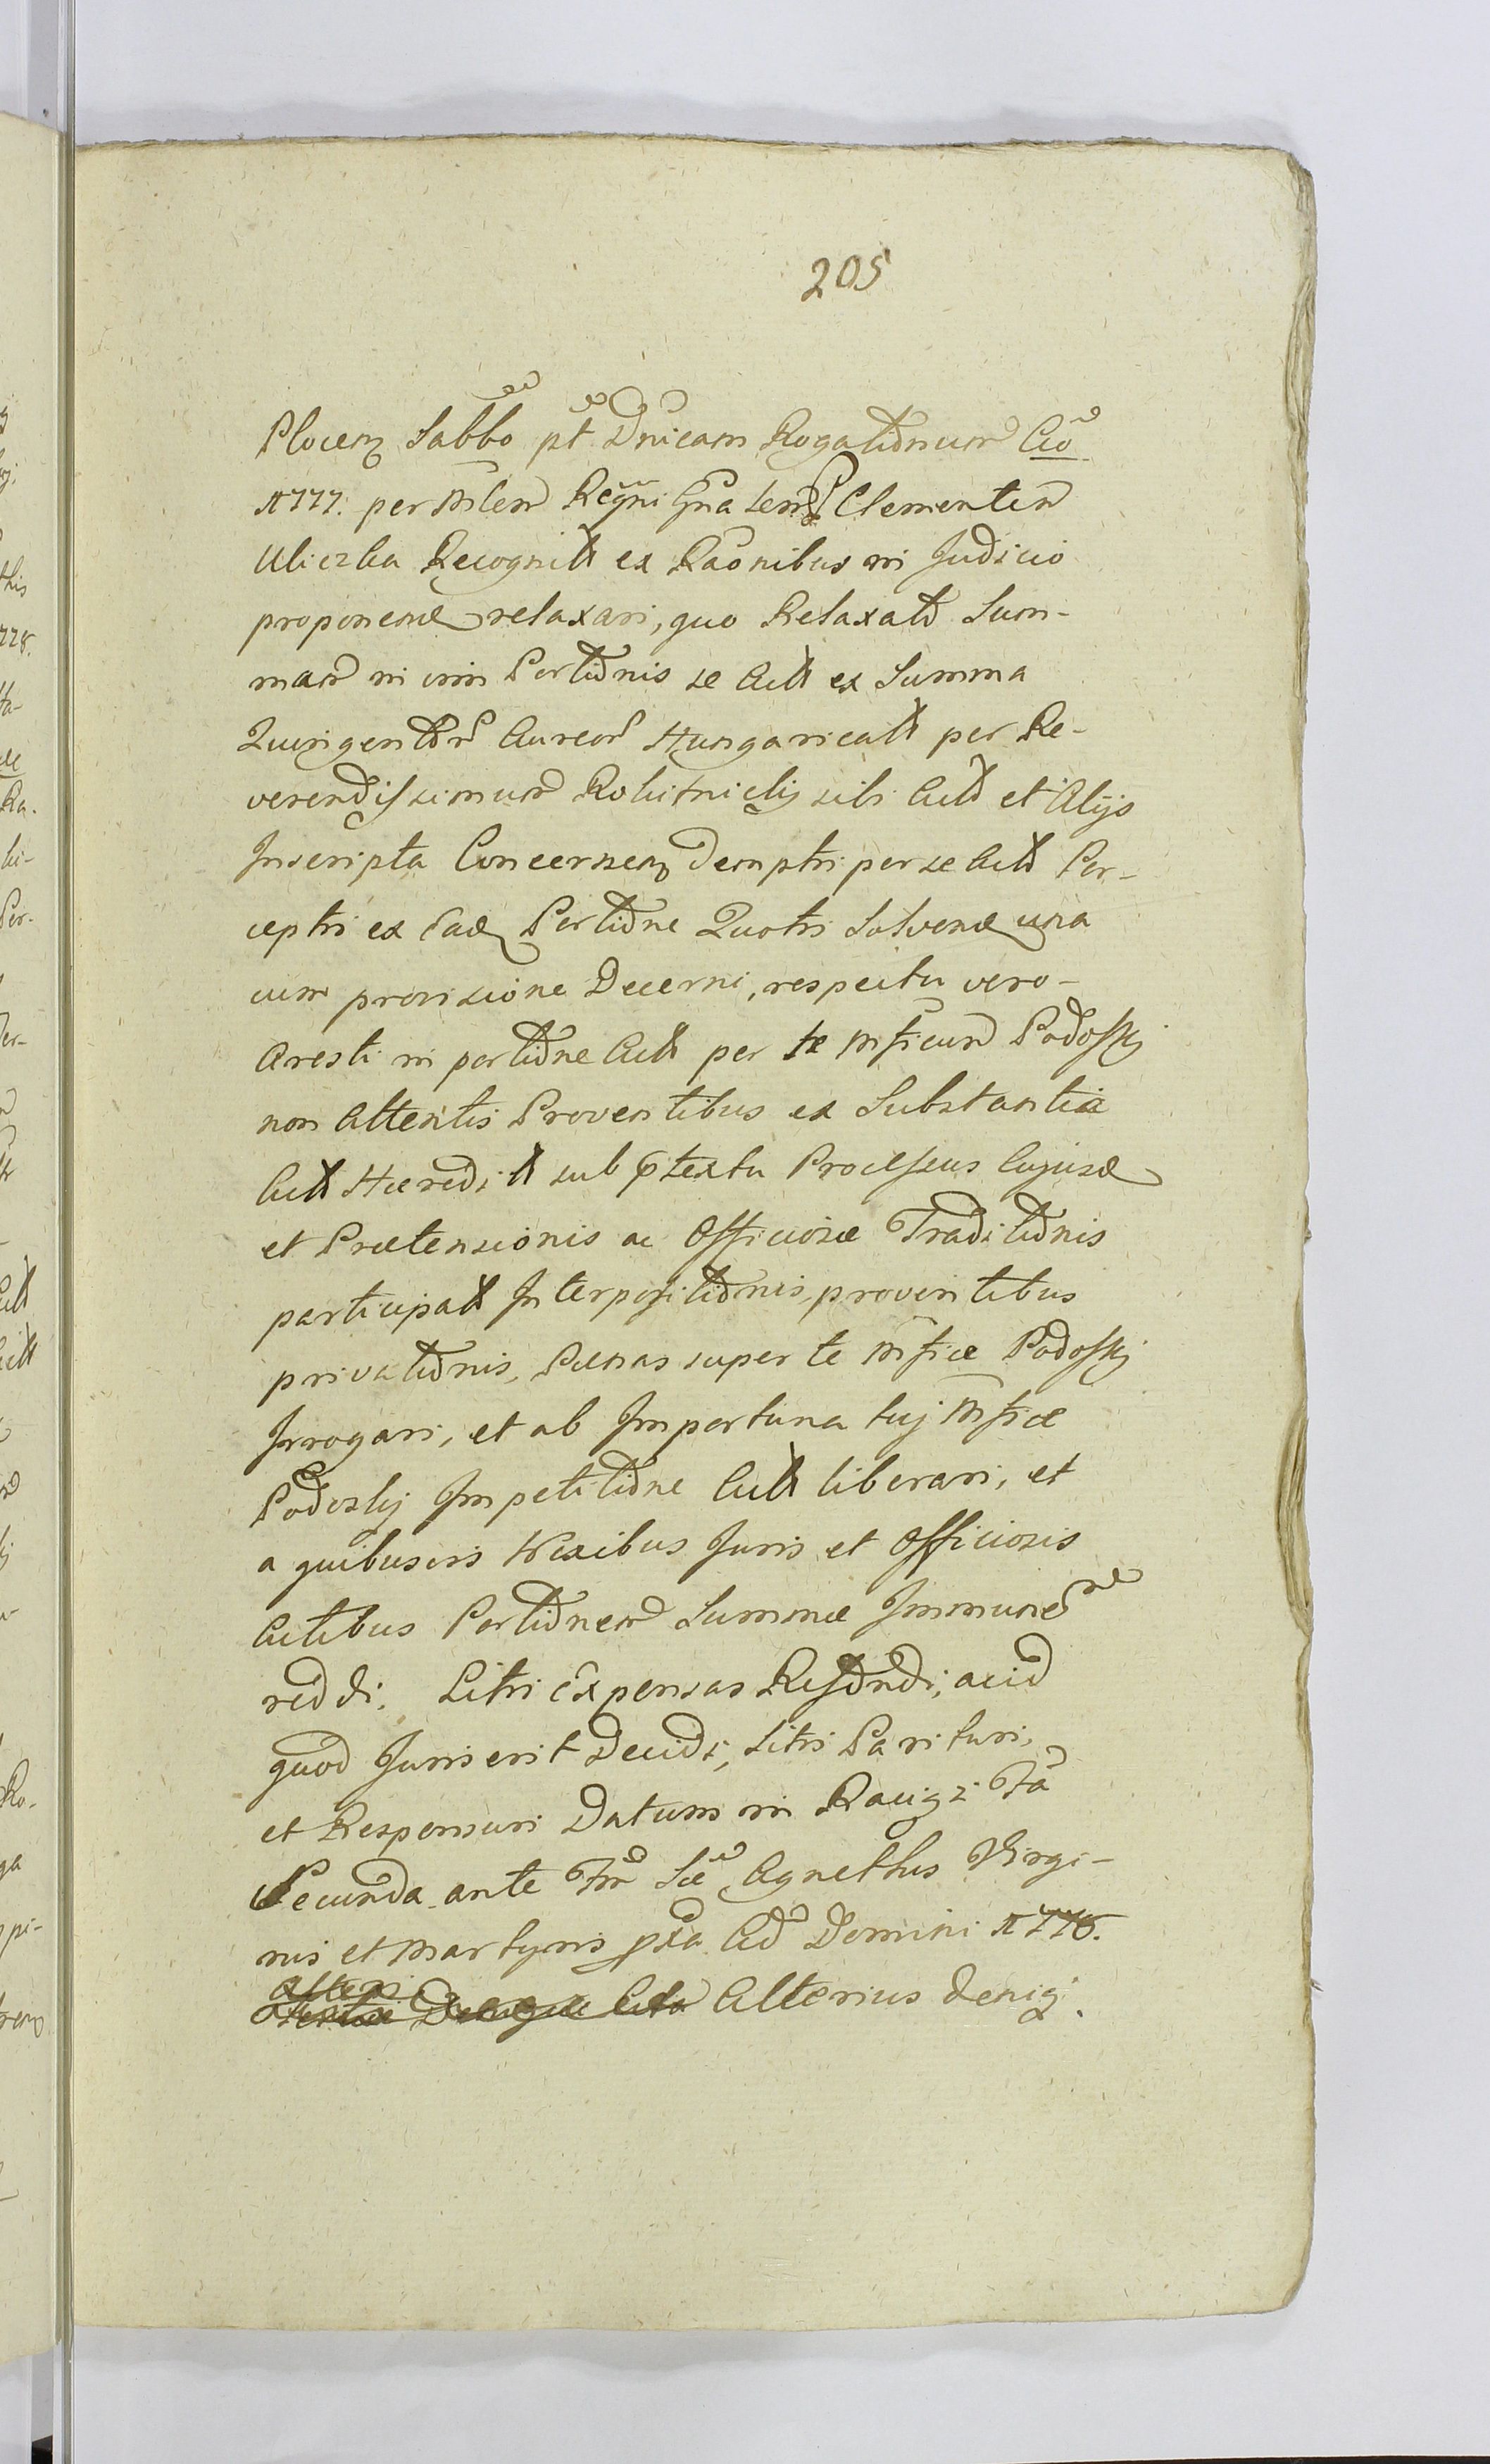 205
Plocen Sabbo pt Dnicam Rogationum Ao
1777. per Mlem Regni Gnalem Clementem
Uliczka Recognitt ex Raonibus in Judicio
proponend relaxari, quo Relaxato Sum-
mam in vim Portionis se Actt ex Summa
Quingentor Aureor Hungaricalt per Re-
verendissimum Rokitnicki sibi Actt et Alijs
Inscripta Concernen demptis per se Actt Per-
ceptis ex Ead Portione Quotis Solvend una
cum provisione Decerni, respectu vero
Aresti in portione Actt per te Mficum Podoskj
non Attentis Proventibus ex Substantia
Actt Hæredit sub ptextu Processus Cujusd
et Prætensionis ac Officiosæ Traditionis
participatt Interpositionis, proventibus
privationis, Pænas super te Mfice Podoskj
Irrogari, et ab Importuna tuj Mfice
Podoskj Impetitione Actt liberari, et
a quibusvis Nexibus Juris et Officiosis
Actibus Portionem Summæ Immunem
reddi. Litis Expensas Refundi, acid
quod Juris erit Decidi, Litis Parituri,
et Responsuri Datum in Raciąż Fa
Secunda ante Fm Sæ Agnethis Virgi-
nis et Martyris pxa Ao Domini 1778.
Alterius deniq.